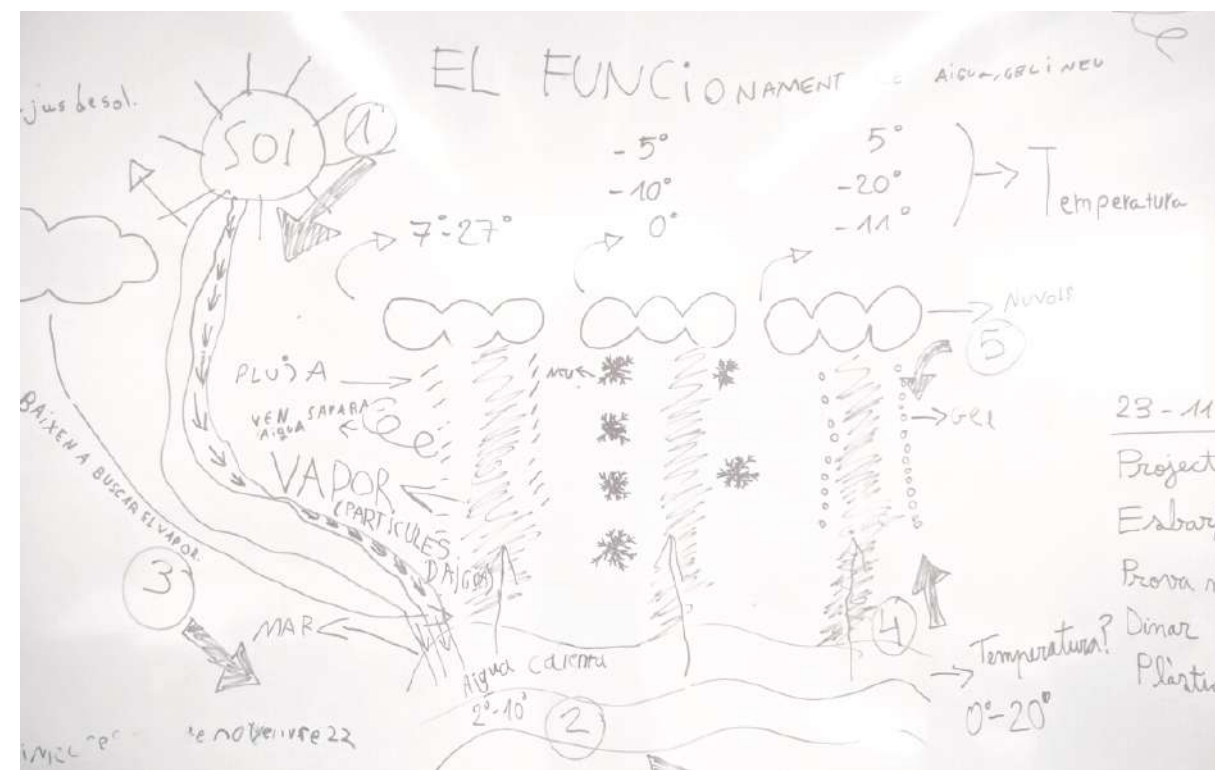 EL FUNCIONAMENT
AiGUA, GEL i NEU
jus desol.
SOl
1
-5°
-10°
0°
5°
-20°
-11°
Temperatura
7°-27°
NUVOLS
5
PLUJA
NEU
GEL
VEN, SAPARA
AiGUA
VAPOR
(PARTÍCULES
DAIGUA)
BAIXEN A BUSCAR EL VAPOR.
3
MAR
4
Aigua calenta
2°-10°
2
Temperatura?
0°-20°
23-11
Project
Esbar
Prova
Dinar
Plàsti
22